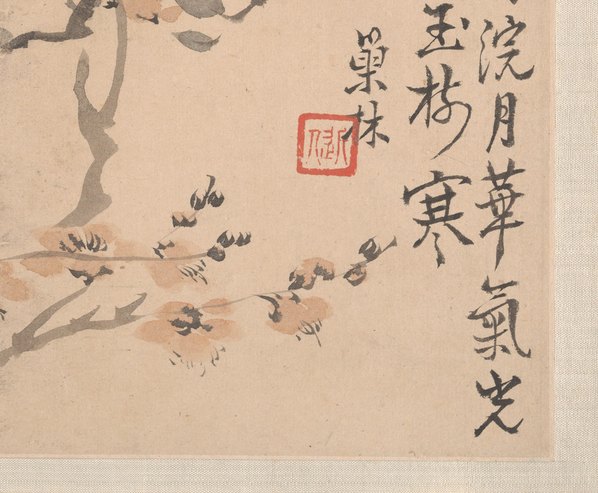 浣月華氣光
玉樹寒
巢林